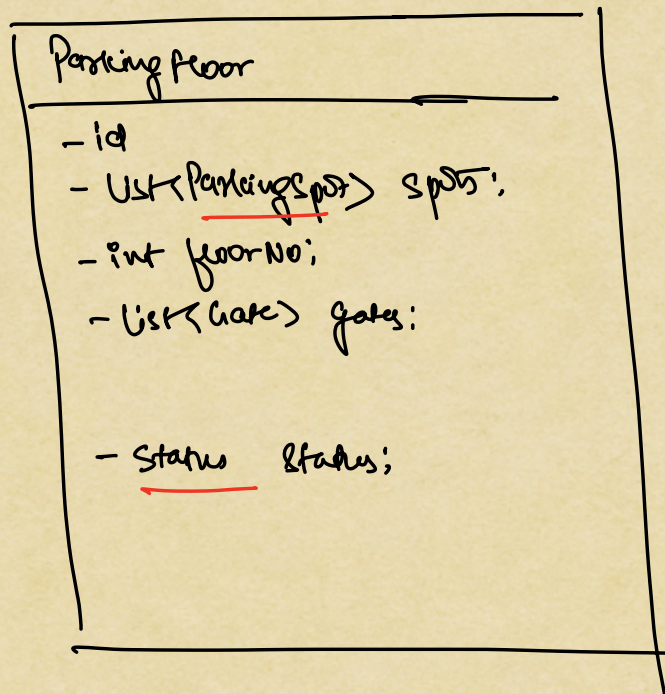 Parking floor
- id
- List<ParkingSpot> spots;
- int floorNo;
- List<Gate> gates;
- Status status;